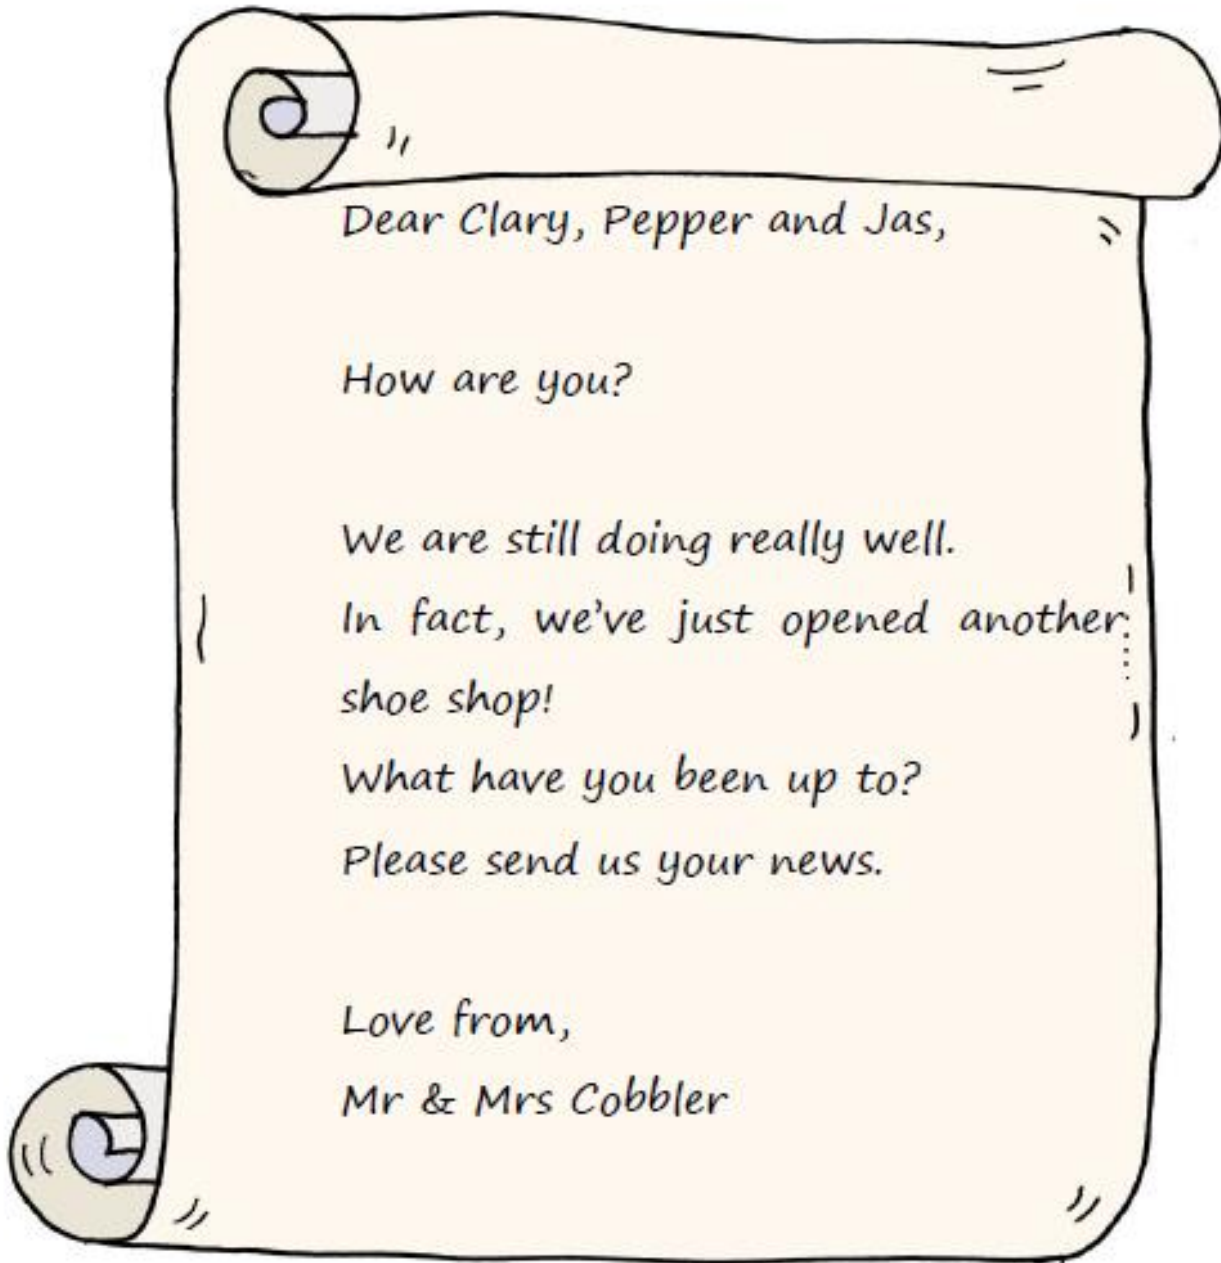 Dear Clary, Pepper and Jas,
How are you?
We are still doing really well.
In fact, we've just opened another
shoe shop!
What have you been up to?
Please send us your news.
Love from,
Mr & Mrs Cobbler